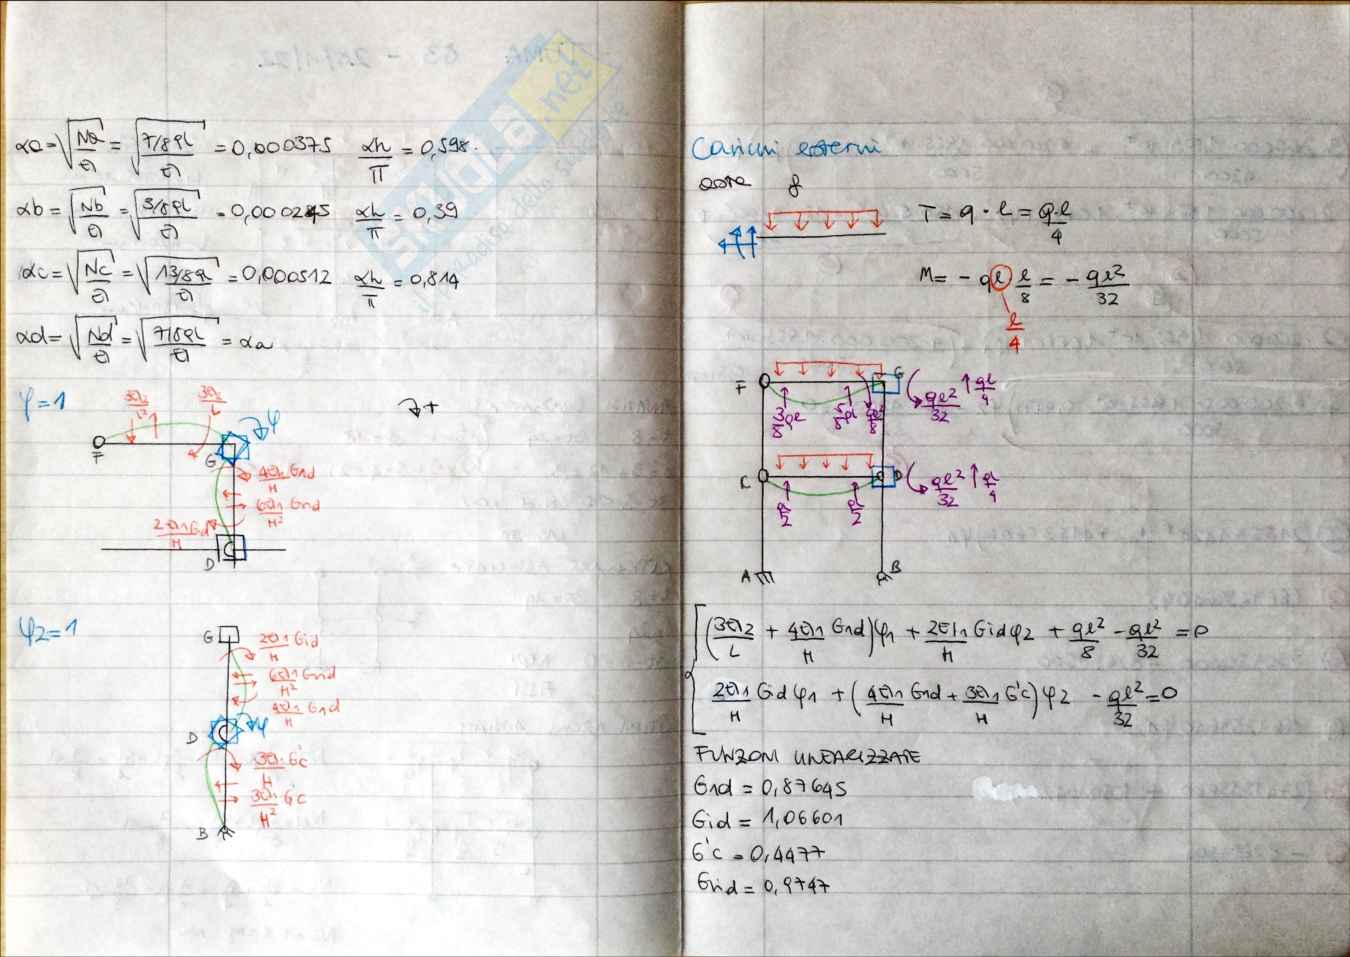 αa = √(Na/EI) = √(7/8 ql/EI) = 0,000375 αh/π = 0,598.
αb = √(Nb/EI) = √(3/8 ql/EI) = 0,000245 αh/π = 0,39
αc = √(Nc/EI) = √(13/8 ql/EI) = 0,000512 αh/π = 0,814
αd = √(Nd/EI) = √(7/8 ql/EI) = αa
φ=1
3EI2/L² 3EI2/L φ
+
F G
4EI1/H Gnd
6EI1/H²
2EI1/H Gid
D
φ2=1
G
2EI1/H Gid
6EI1/H²
4EI1/H Gnd
D φ
3EI1/H G'c
3EI1/H² G'c
B
SKUOLA.net
Carichi esterni
T = q · l = ql/4
M = - ql l/8 = - ql²/32
l/4
F G
3/8 ql 5/8 ql ql²/8 ql²/32 ql/4
ql/2 ql/2 D ql²/32 ql/4
A B
(3EI2/L + 4EI1/H Gnd)φ1 + 2EI1/H Gid φ2 + ql²/8 - ql²/32 = 0
2EI1/H Gid φ1 + (4EI1/H Gnd + 3EI1/H G'c) φ2 - ql²/32 = 0
FUNZIONI LINEARIZZATE
Gnd = 0,87645
Gid = 1,06601
G'c = 0,4477
= 0,9747